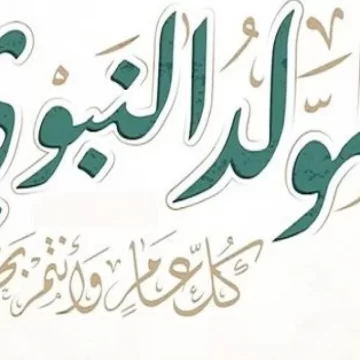 المولد النبوي
كُلُّ عَامٍ وَأَنتُمْ بِخَ